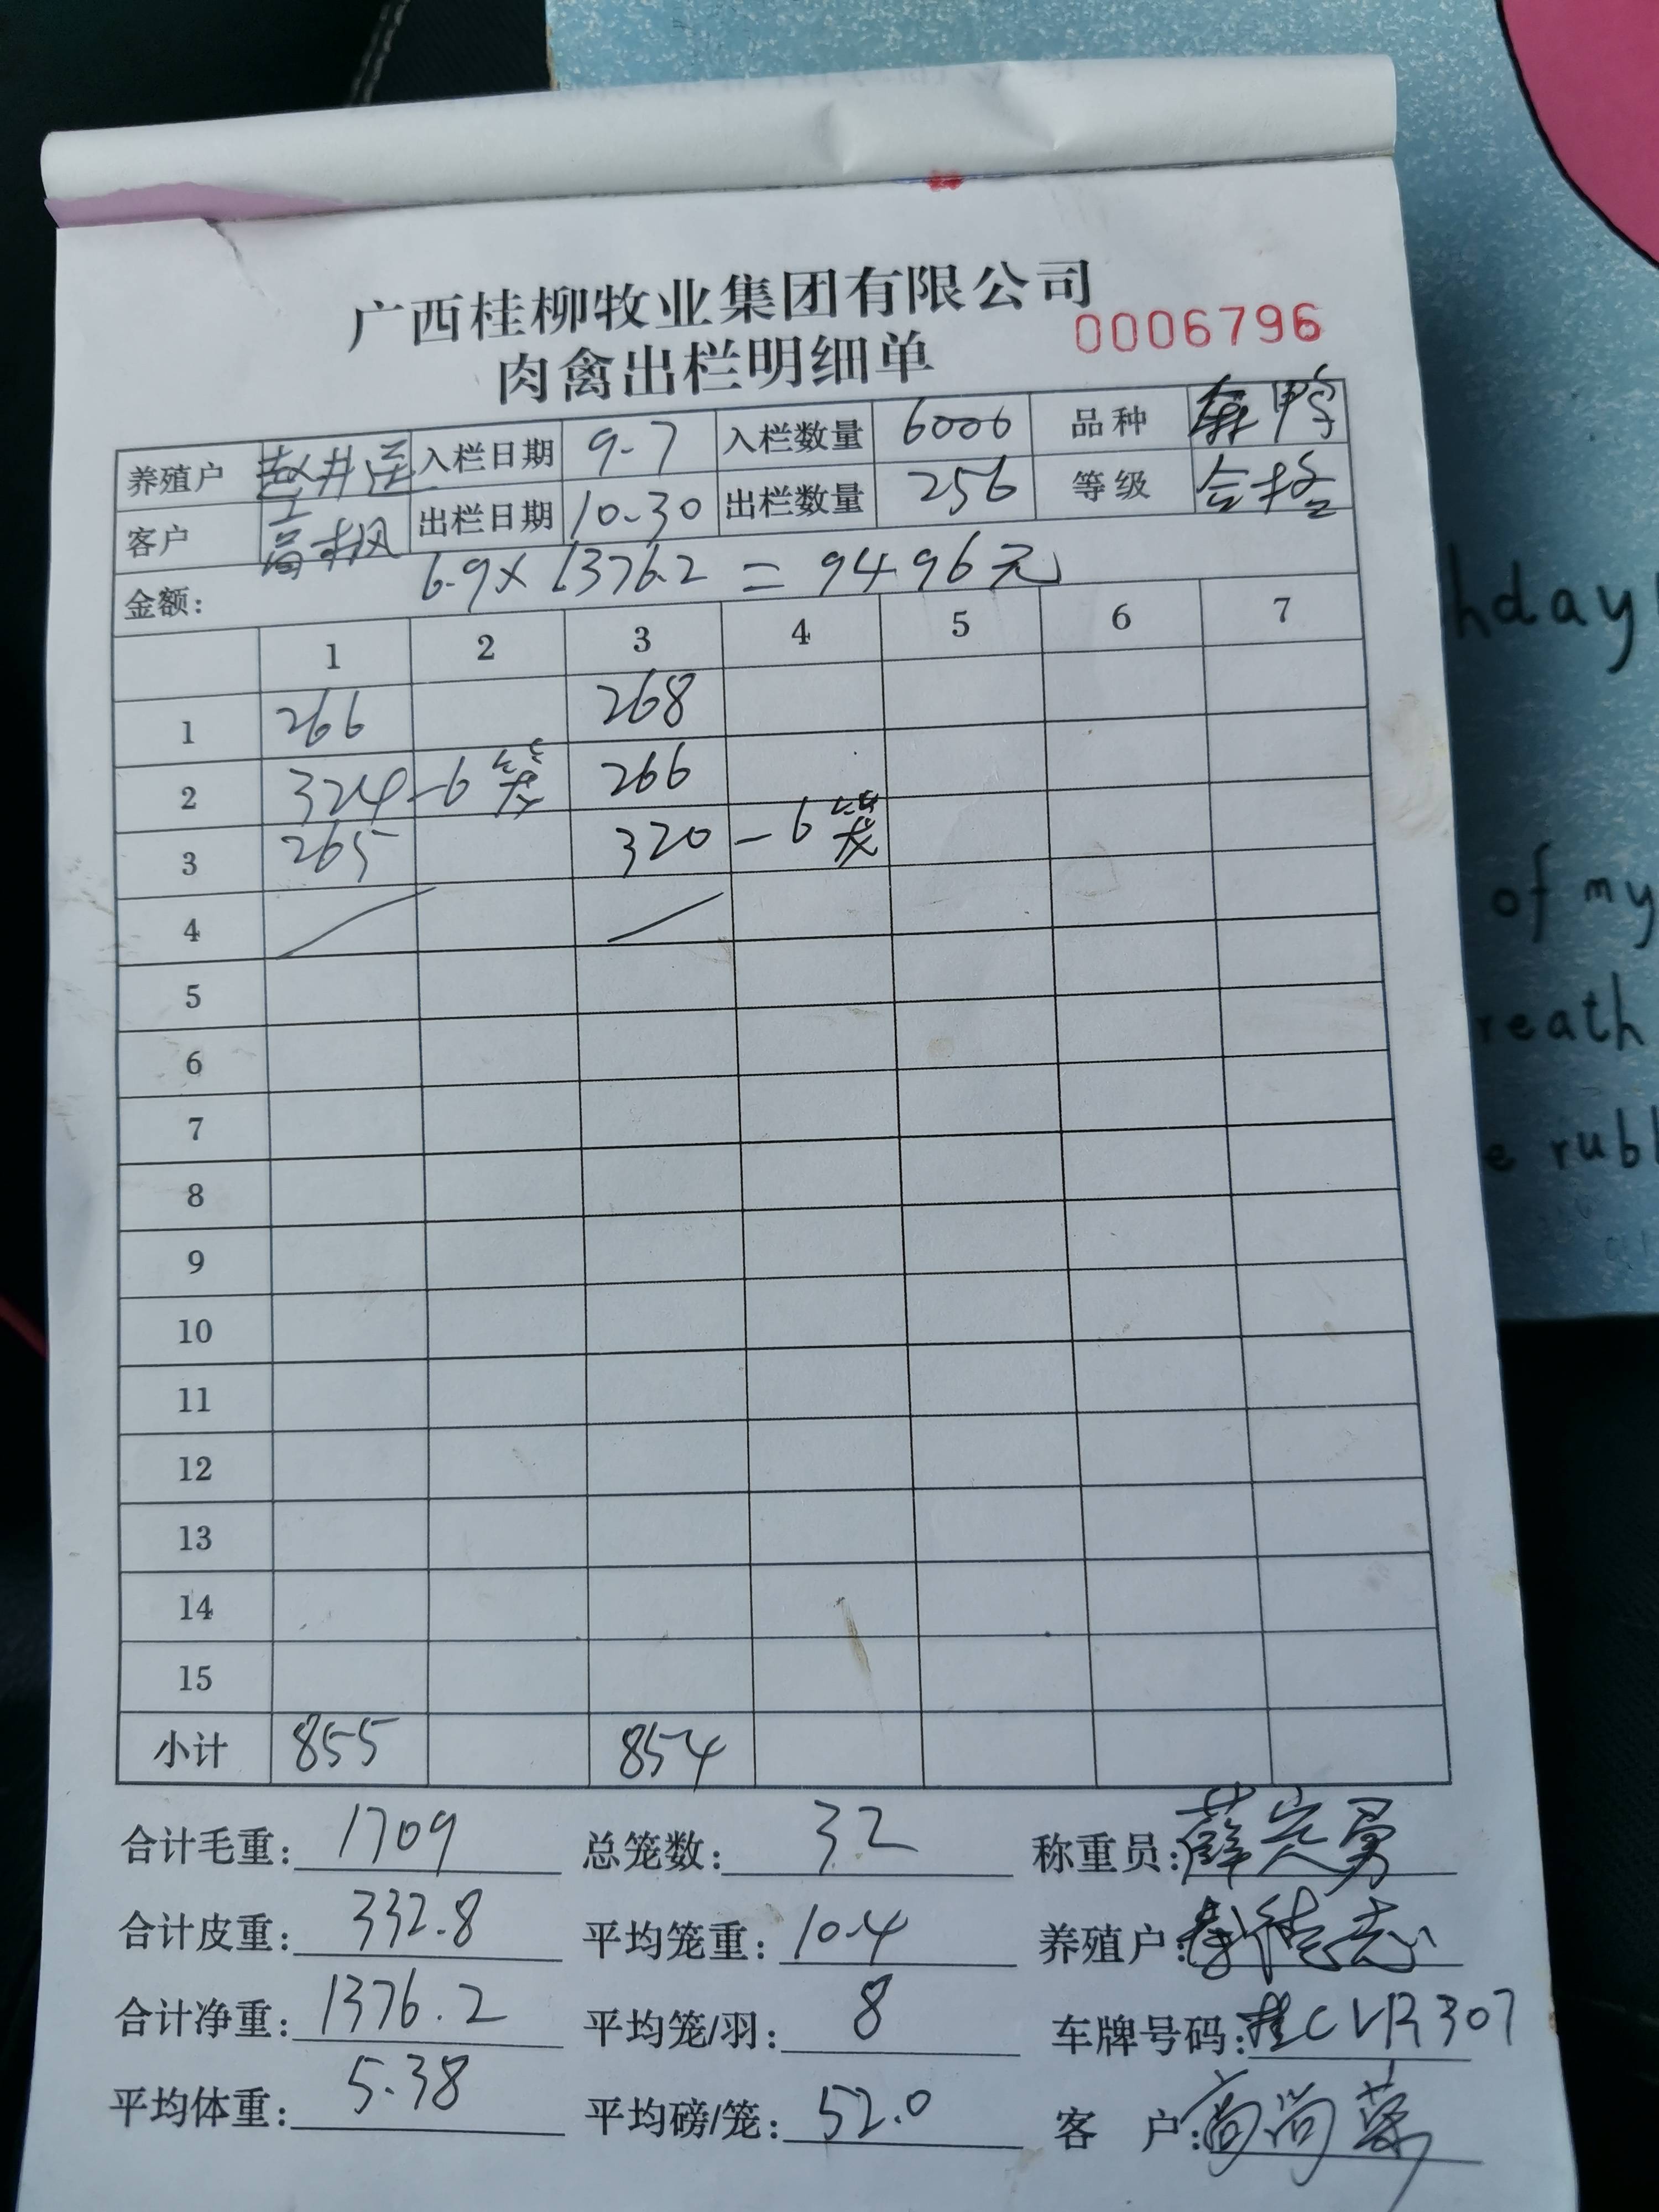 广西桂柳牧业集团有限公司
肉禽出栏明细单
0006796
养殖户 入栏日期 9-7 入栏数量 6006 品种 鸭
客户 高 枫 出栏日期 10-30 出栏数量 256 等级 合格
金额: 6.9×1376.2=9496元
1 2 3 4 5 6 7
1 266 268
2 324-6笼 266
3 265 320-6笼
4
5
6
7
8
9
10
11
12
13
14
15
小计 855 854
合计毛重: 1709 总笼数: 32 称重员: 薛定勇
合计皮重: 332.8 平均笼重: 10.4 养殖户:
合计净重: 1376.2 平均笼/羽: 8 车牌号码: 桂CVR307
平均体重: 5.38 平均磅/笼: 52.0 客户: 高尚
hday
of my
reath
e rubl